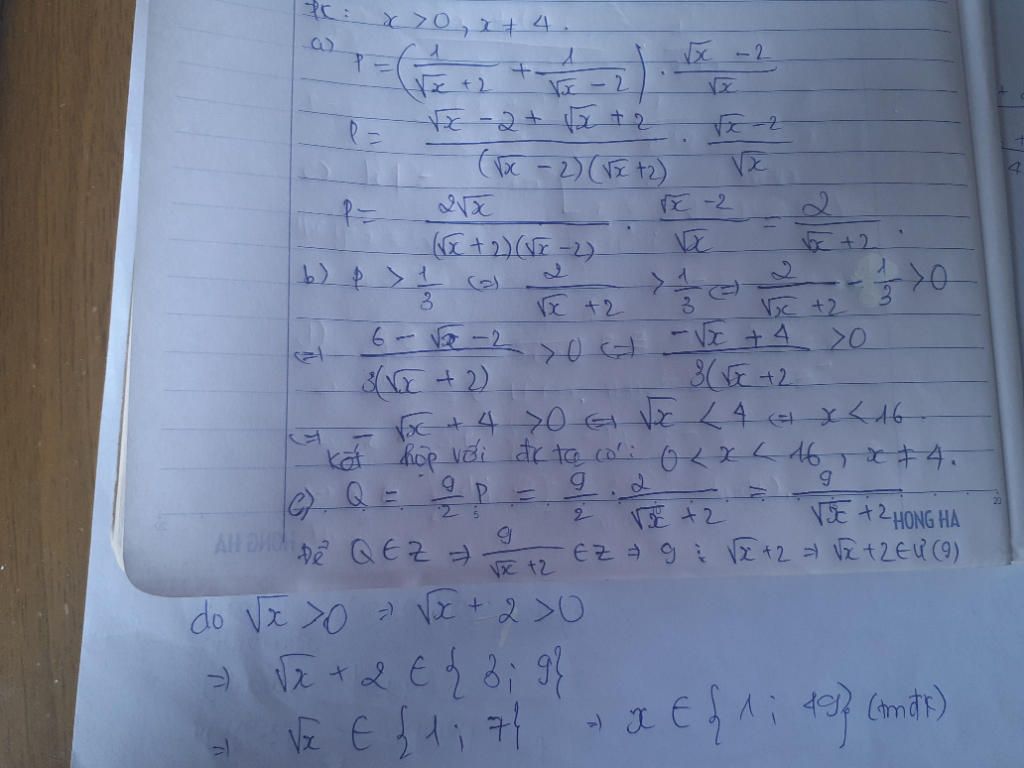 đk: x > 0, x ≠ 4.
a) P = (1/(√x + 2) + 1/(√x − 2)) · (√x − 2)/√x
P = (√x − 2 + √x + 2)/((√x − 2)(√x + 2)) · (√x − 2)/√x
P = 2√x/((√x + 2)(√x − 2)) · (√x − 2)/√x = 2/(√x + 2).
b) P > 1/3 ⇔ 2/(√x + 2) > 1/3 ⇔ 2/(√x + 2) − 1/3 > 0
⇔ (6 − √x − 2)/(3(√x + 2)) > 0 ⇔ (−√x + 4)/(3(√x + 2) > 0
⇔ − √x + 4 > 0 ⇔ √x < 4 ⇔ x < 16.
kết hợp với đk ta có: 0 < x < 16, x ≠ 4.
c) Q = 9/2 P = 9/2 · 2/(√x + 2) = 9/(√x + 2)
HONG HA
Để Q ∈ Z ⇒ 9/(√x + 2) ∈ Z ⇒ 9 ⋮ √x + 2 ⇒ √x + 2 ∈ Ư(9)
do √x > 0 ⇒ √x + 2 > 0
⇒ √x + 2 ∈ {3; 9}
⇒ √x ∈ {1; 7} ⇒ x ∈ {1; 49} (tmđk)